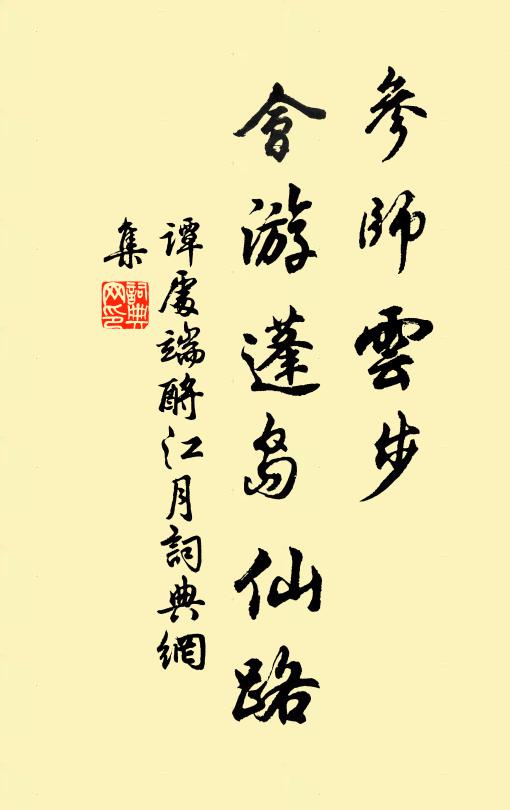 參師雲步
會游蓬島仙路
譚處端酹江月詞典網
集
詞典
网印